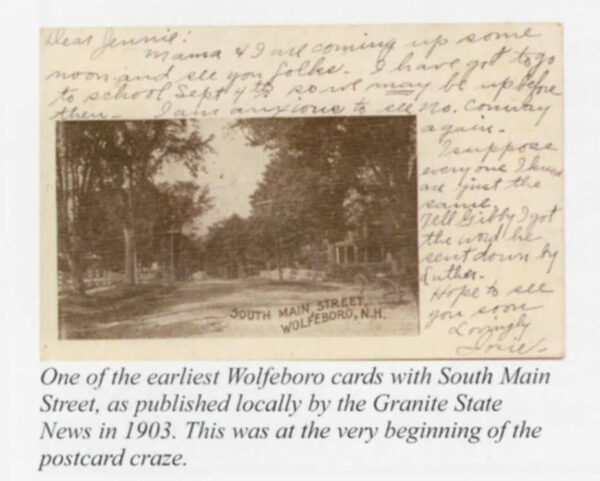 Dear Jennie:
Mama & I are coming up some
noon and see you folks. I have got to go
to school Sept 4th so we may be up before
then. I am anxious to see No. Conway
again.
I suppose
everyone I know
are just the
same.
Tell Gibby I got
the word he
sent down by
Luther.
Hope to see
you soon
Lovingly
Josie.
SOUTH MAIN STREET,
WOLFEBORO, N.H.
One of the earliest Wolfeboro cards with South Main
Street, as published locally by the Granite State
News in 1903. This was at the very beginning of the
postcard craze.